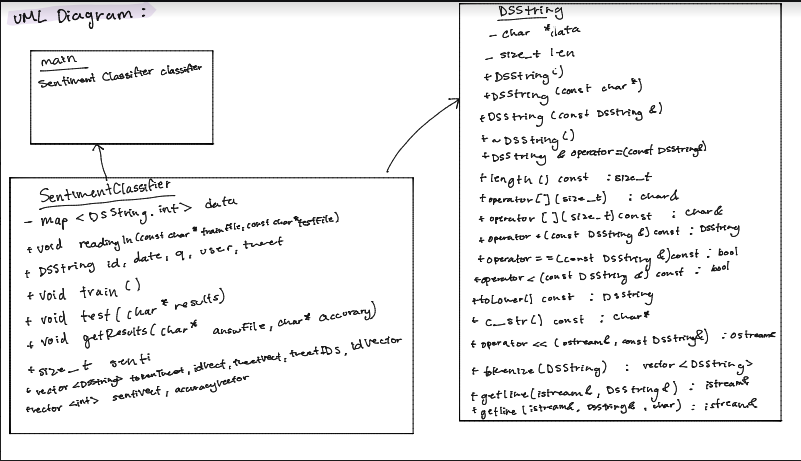 UML Diagram :
main
Sentiment Classifier classifier
SentimentClassifier
- map <DSString, int> data
+ void readingIn(const char* trainFile, const char* testFile)
+ DSString id, date, q, user, tweet
+ void train()
+ void test(char* results)
+ void getResults(char* answFile, char* accuracy)
+ size_t senti
+ vector <DSString> tokenTweet, idVect, tweetVect, tweetIDS, idVector
+vector <int> sentiVect, accuracyVector
DSString
- char *data
- size_t len
+ DSString()
+DSString (const char*)
+ DSString (const DSString &)
+ ~DSString ()
+ DSString & operator=(const DSString&)
+ length () const : size_t
+ operator[] (size_t) : char&
+ operator [] (size_t) const : char&
+ operator + (const DSString &) const : DSString
+operator == (const DSString &)const : bool
+operator < (const DSString &) const : bool
+toLower() const : DSString
+ c_str() const : char*
+ operator << (ostream&, const DSString&) : ostream&
+ tokenize (DSString) : vector <DSString>
+ getline (istream&, DSString&) : istream&
+ getline (istream&, DSString&, char) : istream&